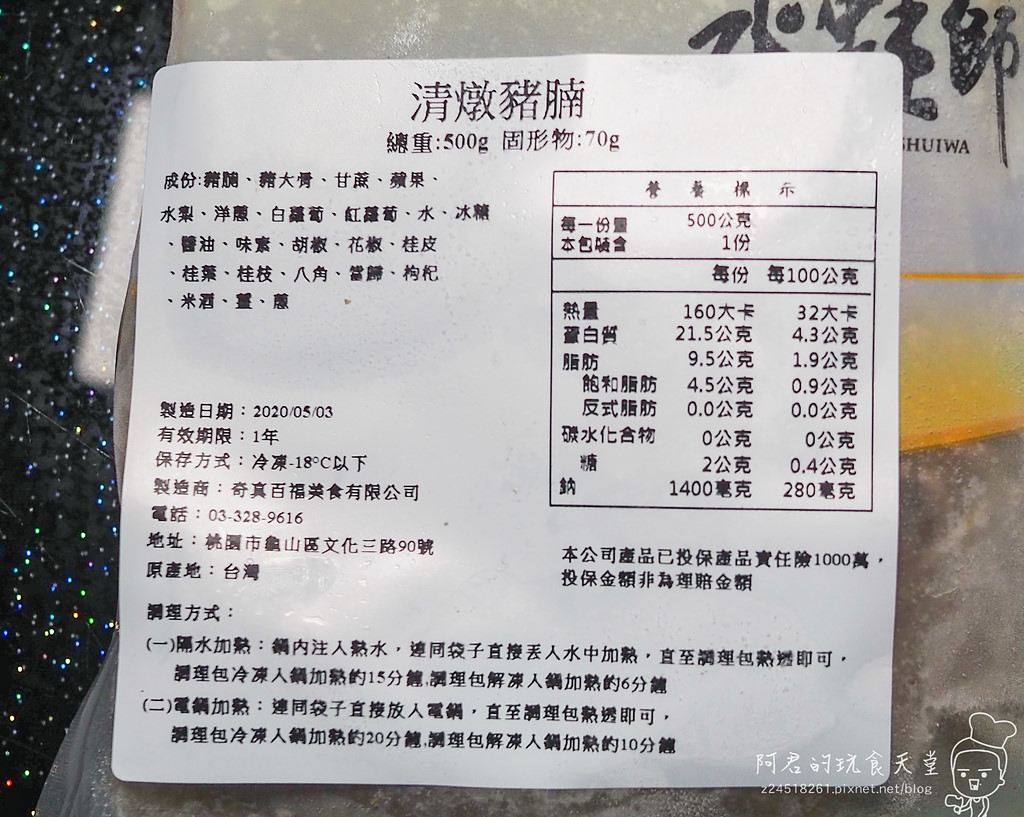 老師
SHUIWA
清燉豬腩
總重:500g 固形物:70g
成份:豬腩、豬大骨、甘蔗、蘋果、
水梨、洋蔥、白蘿蔔、紅蘿蔔、水、冰糖
、醬油、味素、胡椒、花椒、桂皮
、桂葉、桂枝、八角、當歸、枸杞
、米酒、薑、蔥
營養標示
每一份量 500公克
本包裝含 1份
每份 每100公克
熱量 160大卡 32大卡
蛋白質 21.5公克 4.3公克
脂肪 9.5公克 1.9公克
飽和脂肪 4.5公克 0.9公克
反式脂肪 0.0公克 0.0公克
碳水化合物 0公克 0公克
糖 2公克 0.4公克
鈉 1400毫克 280毫克
製造日期：2020/05/03
有效期限：1年
保存方式：冷凍-18°C以下
製造商：奇真百福美食有限公司
電話：03-328-9616
地址：桃園市龜山區文化三路90號
原產地：台灣
本公司產品已投保產品責任險1000萬，
投保金額非為理賠金額
調理方式：
(一)隔水加熱：鍋內注入熱水，連同袋子直接丟入水中加熱，直至調理包熱透即可，
調理包冷凍入鍋加熱約15分鐘,調理包解凍入鍋加熱約6分鐘
(二)電鍋加熱：連同袋子直接放入電鍋，直至調理包熱透即可，
調理包冷凍入鍋加熱約20分鐘,調理包解凍入鍋加熱約10分鐘
阿君的玩食天堂
z24518261.pixnet.net/blog